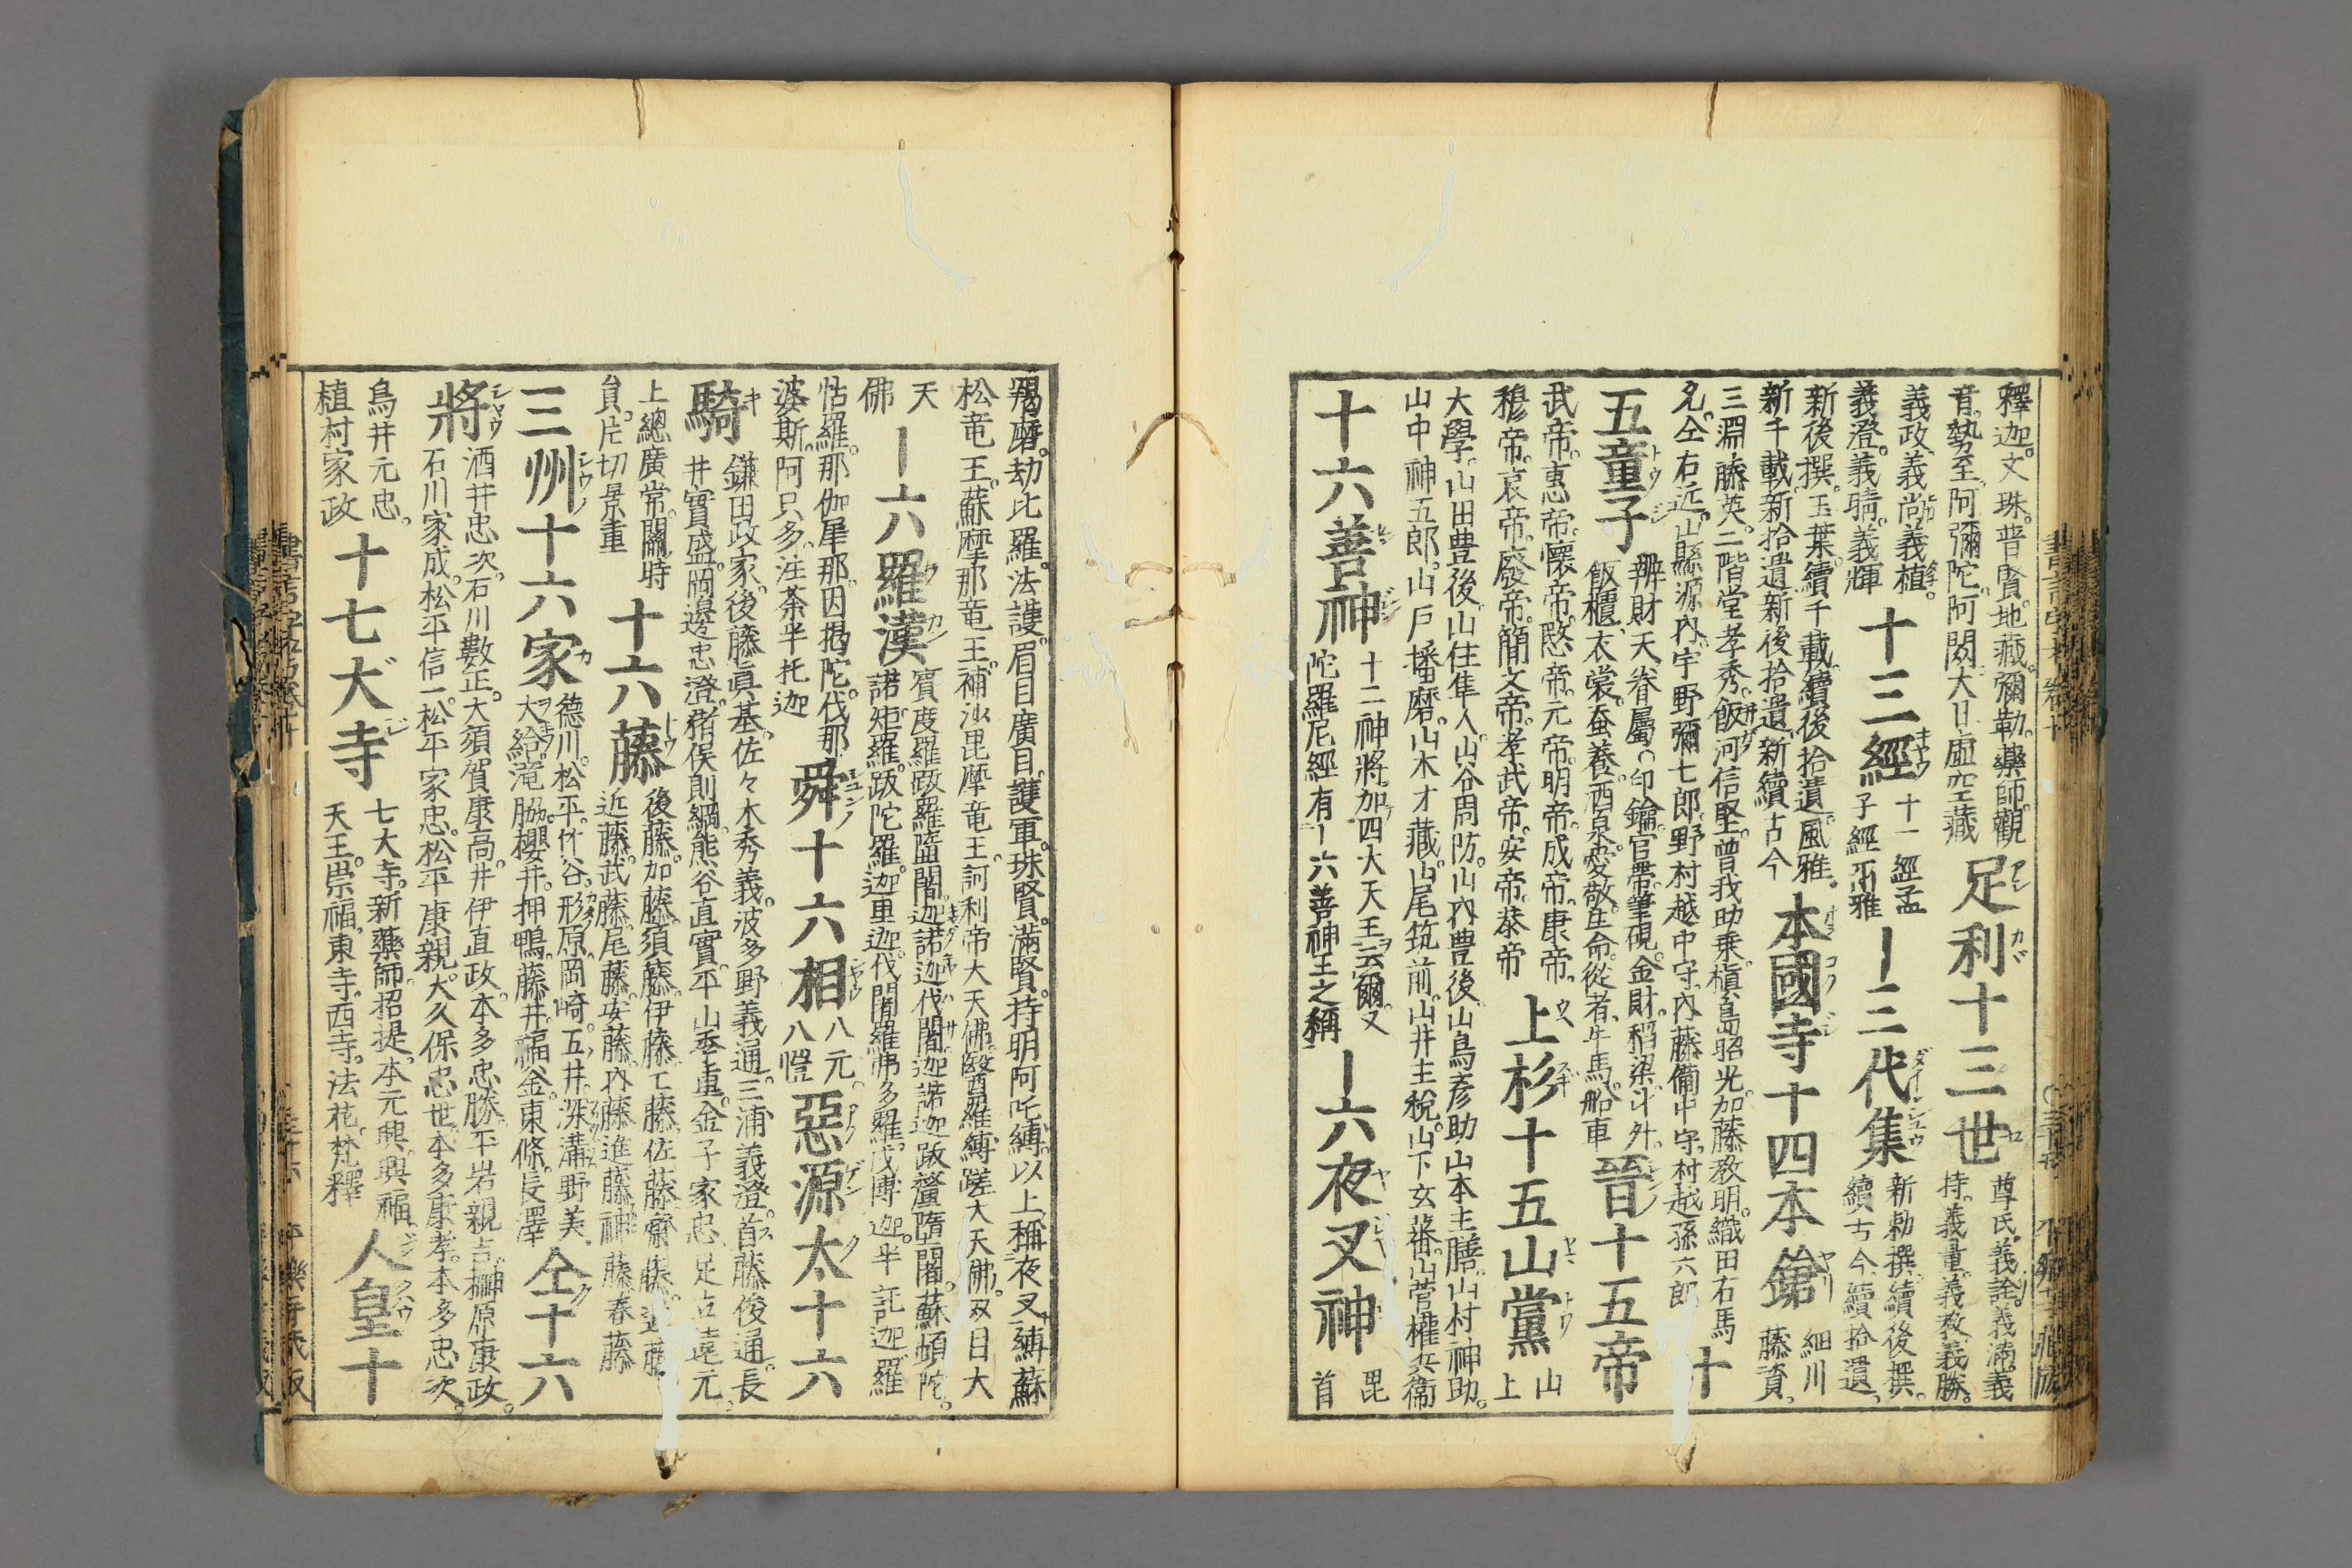 釋迦。文珠。普賢。地藏。彌勒。藥師。觀
音。勢至。阿彌陀。阿閦。大日。虛空藏
足利十三世
尊氏。義詮。義滿。義
持。義量。義教。義勝。
義政。義尚。義植。
義澄。義晴。義輝
十三經
十一經孟
子經爾雅
十三代集
新勅撰。續後撰。
續古今。續拾遺。
新後撰。玉葉。續千載。續後拾遺。風雅。
新千載。新拾遺。新後拾遺。新續古今
本國寺十四本鎗
細川
藤資。
三淵藤英。二階堂孝秀。飯河信堅。曾我助乗。槇島昭光。加藤教明。織田右馬
允。仝右近。山縣源内。宇野彌七郎。野村越中守。内藤備中守。村越孫六郎
十
五童子
辨財天眷屬○印鑰。官帶。筆硯。金財。稻梁。斗舛。
飯櫃。衣裳。蚕養。酒泉。愛敬。生命。從者。牛馬。船車
晉十五帝
武帝。惠帝。懷帝。愍帝。元帝。明帝。成帝。康帝。
穆帝。哀帝。廢帝。簡文帝。孝武帝。安帝。恭帝
上杉十五山黨
山
上
大學。山田豊後。山住隼人。山谷周防。山内豊後。山鳥彦助。山本主膳。山村神助。
山中神五郎。山戶播磨。山木才藏。山尾筑前。山井主稅。山下玄蕃。山菅權兵衞
十六善神
十二神將。加四大天王云爾。又
陀羅尼經有十六善神王之稱
十六夜叉神
毘
首
羯磨。劫比羅。法護。眉目。廣目。護軍。珠賢。滿賢。持明。阿吒縛。以上稱夜叉。縛蘇
松竜王。蘇摩那竜王。補沙毘摩竜王。訶利帝大天佛。毉羅縛蹉大天佛。双目大
天
佛
十六羅漢
賓度羅跋羅墮闍。迦諾迦伐闍。迦諾迦跋釐墮闍。蘇頻陀。
諾炬羅。跋陀羅。迦里迦。伐闍羅弗多羅。戍博迦。半託迦。羅
怙羅。那伽犀那。因揭陀。伐那
婆斯。阿只多。注荼半托迦
舜十六相
八元
八愷
惡源太十六
騎
鎌田政家。後藤眞基。佐々木秀義。波多野義通。三浦義澄。首藤俊通。長
井實盛。岡邊忠澄。猪俣則綱。熊谷直實。平山季重。金子家忠。足立遠元。
上總廣常。關時
貟。片切景重
十六藤
後藤。加藤。須藤。伊藤。工藤。佐藤。齋藤。遠藤
近藤。武藤。尾藤。安藤。内藤。進藤。神藤。春藤
三州十六家
德川。松平。竹谷。形原。岡崎。五井。深溝。野美。
大給。滝脇。櫻井。押鴨。藤井。福釜。東條。長澤
仝十六
將
酒井忠次。石川數正。大須賀康高。井伊直政。本多忠勝。平岩親吉。榊原康政。
石川家成。松平信一。松平家忠。松平康親。大久保忠世。本多康孝。本多忠次。
鳥井元忠。
植村家政
十七大寺
七大寺。新藥師。招提。本元興。興福。
天王。崇福。東寺。西寺。法花。梵釋
人皇十